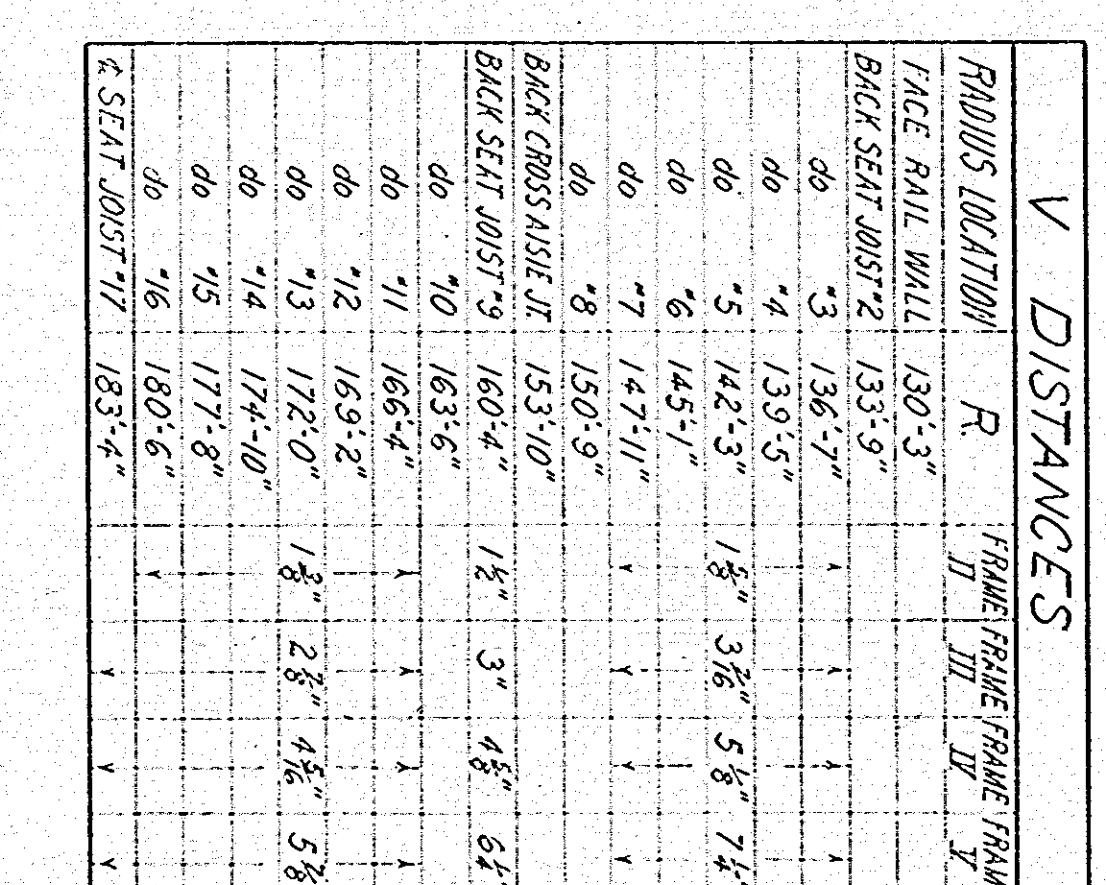 V DISTANCES
RADIUS LOCATION R. FRAME II FRAME III FRAME IV FRAM V
FACE RAIL WALL 130'-3"
BACK SEAT JOIST #2 133'-9"
do #3 136'-7"
do #4 139'-5"
do #5 142'-3" 1 5/8" 3 7/16" 5 1/8" 7 1/4"
do #6 145'-1"
do #7 147'-11"
do #8 150'-9"
BACK CROSS AISLE JT. 153'-10"
BACK SEAT JOIST #9 160'-4" 1 1/2" 3" 4 5/8" 6 1/4"
do #10 163'-6"
do #11 166'-4"
do #12 169'-2"
do #13 172'-0" 1 3/8" 2 7/8" 4 5/16" 5 7/8
do #14 174'-10"
do #15 177'-8"
do #16 180'-6"
℄ SEAT JOIST #17 183'-4"